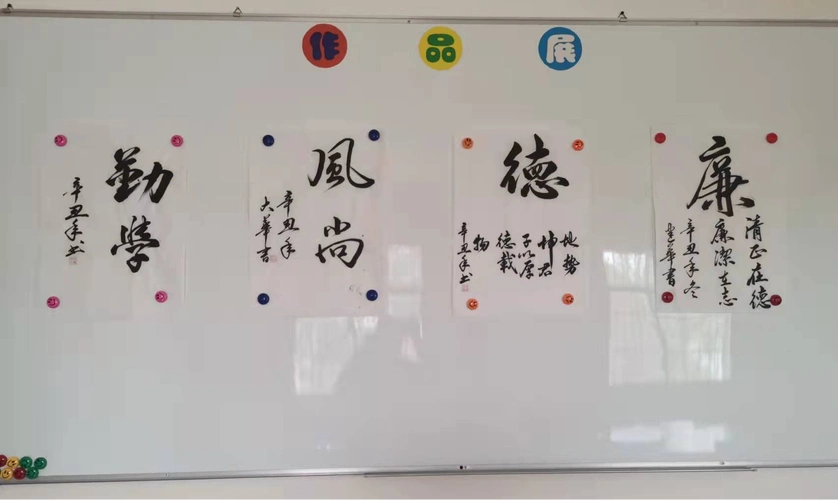 作品展
勤學
辛丑年书
風尚
辛丑年
大華書
德
地勢
坤君
子以厚
德載
物
辛丑年书
廉
清正在德
廉潔在志
辛丑年冬